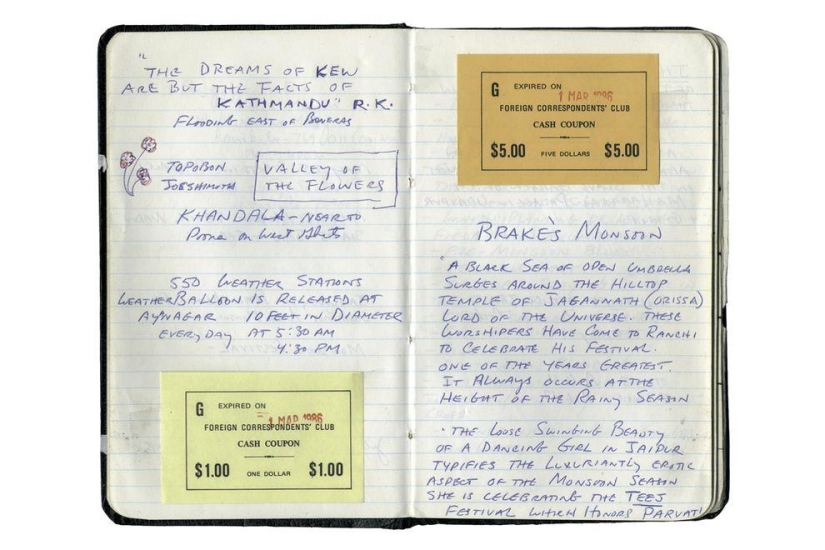 "THE DREAMS OF KEW
ARE BUT THE FACTS OF
KATHMANDU" R.K.
FLOODING EAST OF
TOPOBON
JOESHIMOTH
VALLEY OF
THE FLOWERS
KHANDALA - NEAR TO
on West Ghats
550 WEATHER STATIONS
WEATHERBALLOON IS RELEASED AT
AYNAGAR 10 FEET IN DIAMETER
EVERY DAY AT 5:30 AM
4:30 PM
G EXPIRED ON
1 MAR 1986
FOREIGN CORRESPONDENTS' CLUB
CASH COUPON
$1.00 ONE DOLLAR $1.00
G EXPIRED ON
1 MAR 1986
FOREIGN CORRESPONDENTS' CLUB
CASH COUPON
$5.00 FIVE DOLLARS $5.00
BRAKE'S MONSOON
"A BLACK SEA OF OPEN UMBRELLA
SURGES AROUND THE HILLTOP
TEMPLE OF JAGANNATH (ORISSA)
LORD OF THE UNIVERSE. THESE
WORSHIPERS HAVE COME TO RANCHI
TO CELEBRATE HIS FESTIVAL.
ONE OF THE YEARS GREATEST.
IT ALWAYS OCCURS AT THE
HEIGHT OF THE RAINY SEASON
"THE LOOSE SWINGING BEAUTY
OF A DANCING GIRL IN JAIPUR
TYPIFIES THE LUXURIANTLY EROTIC
ASPECT OF THE MONSOON SEASON
SHE IS CELEBRATING THE TEEJ
FESTIVAL WHICH HONORS PARVATI